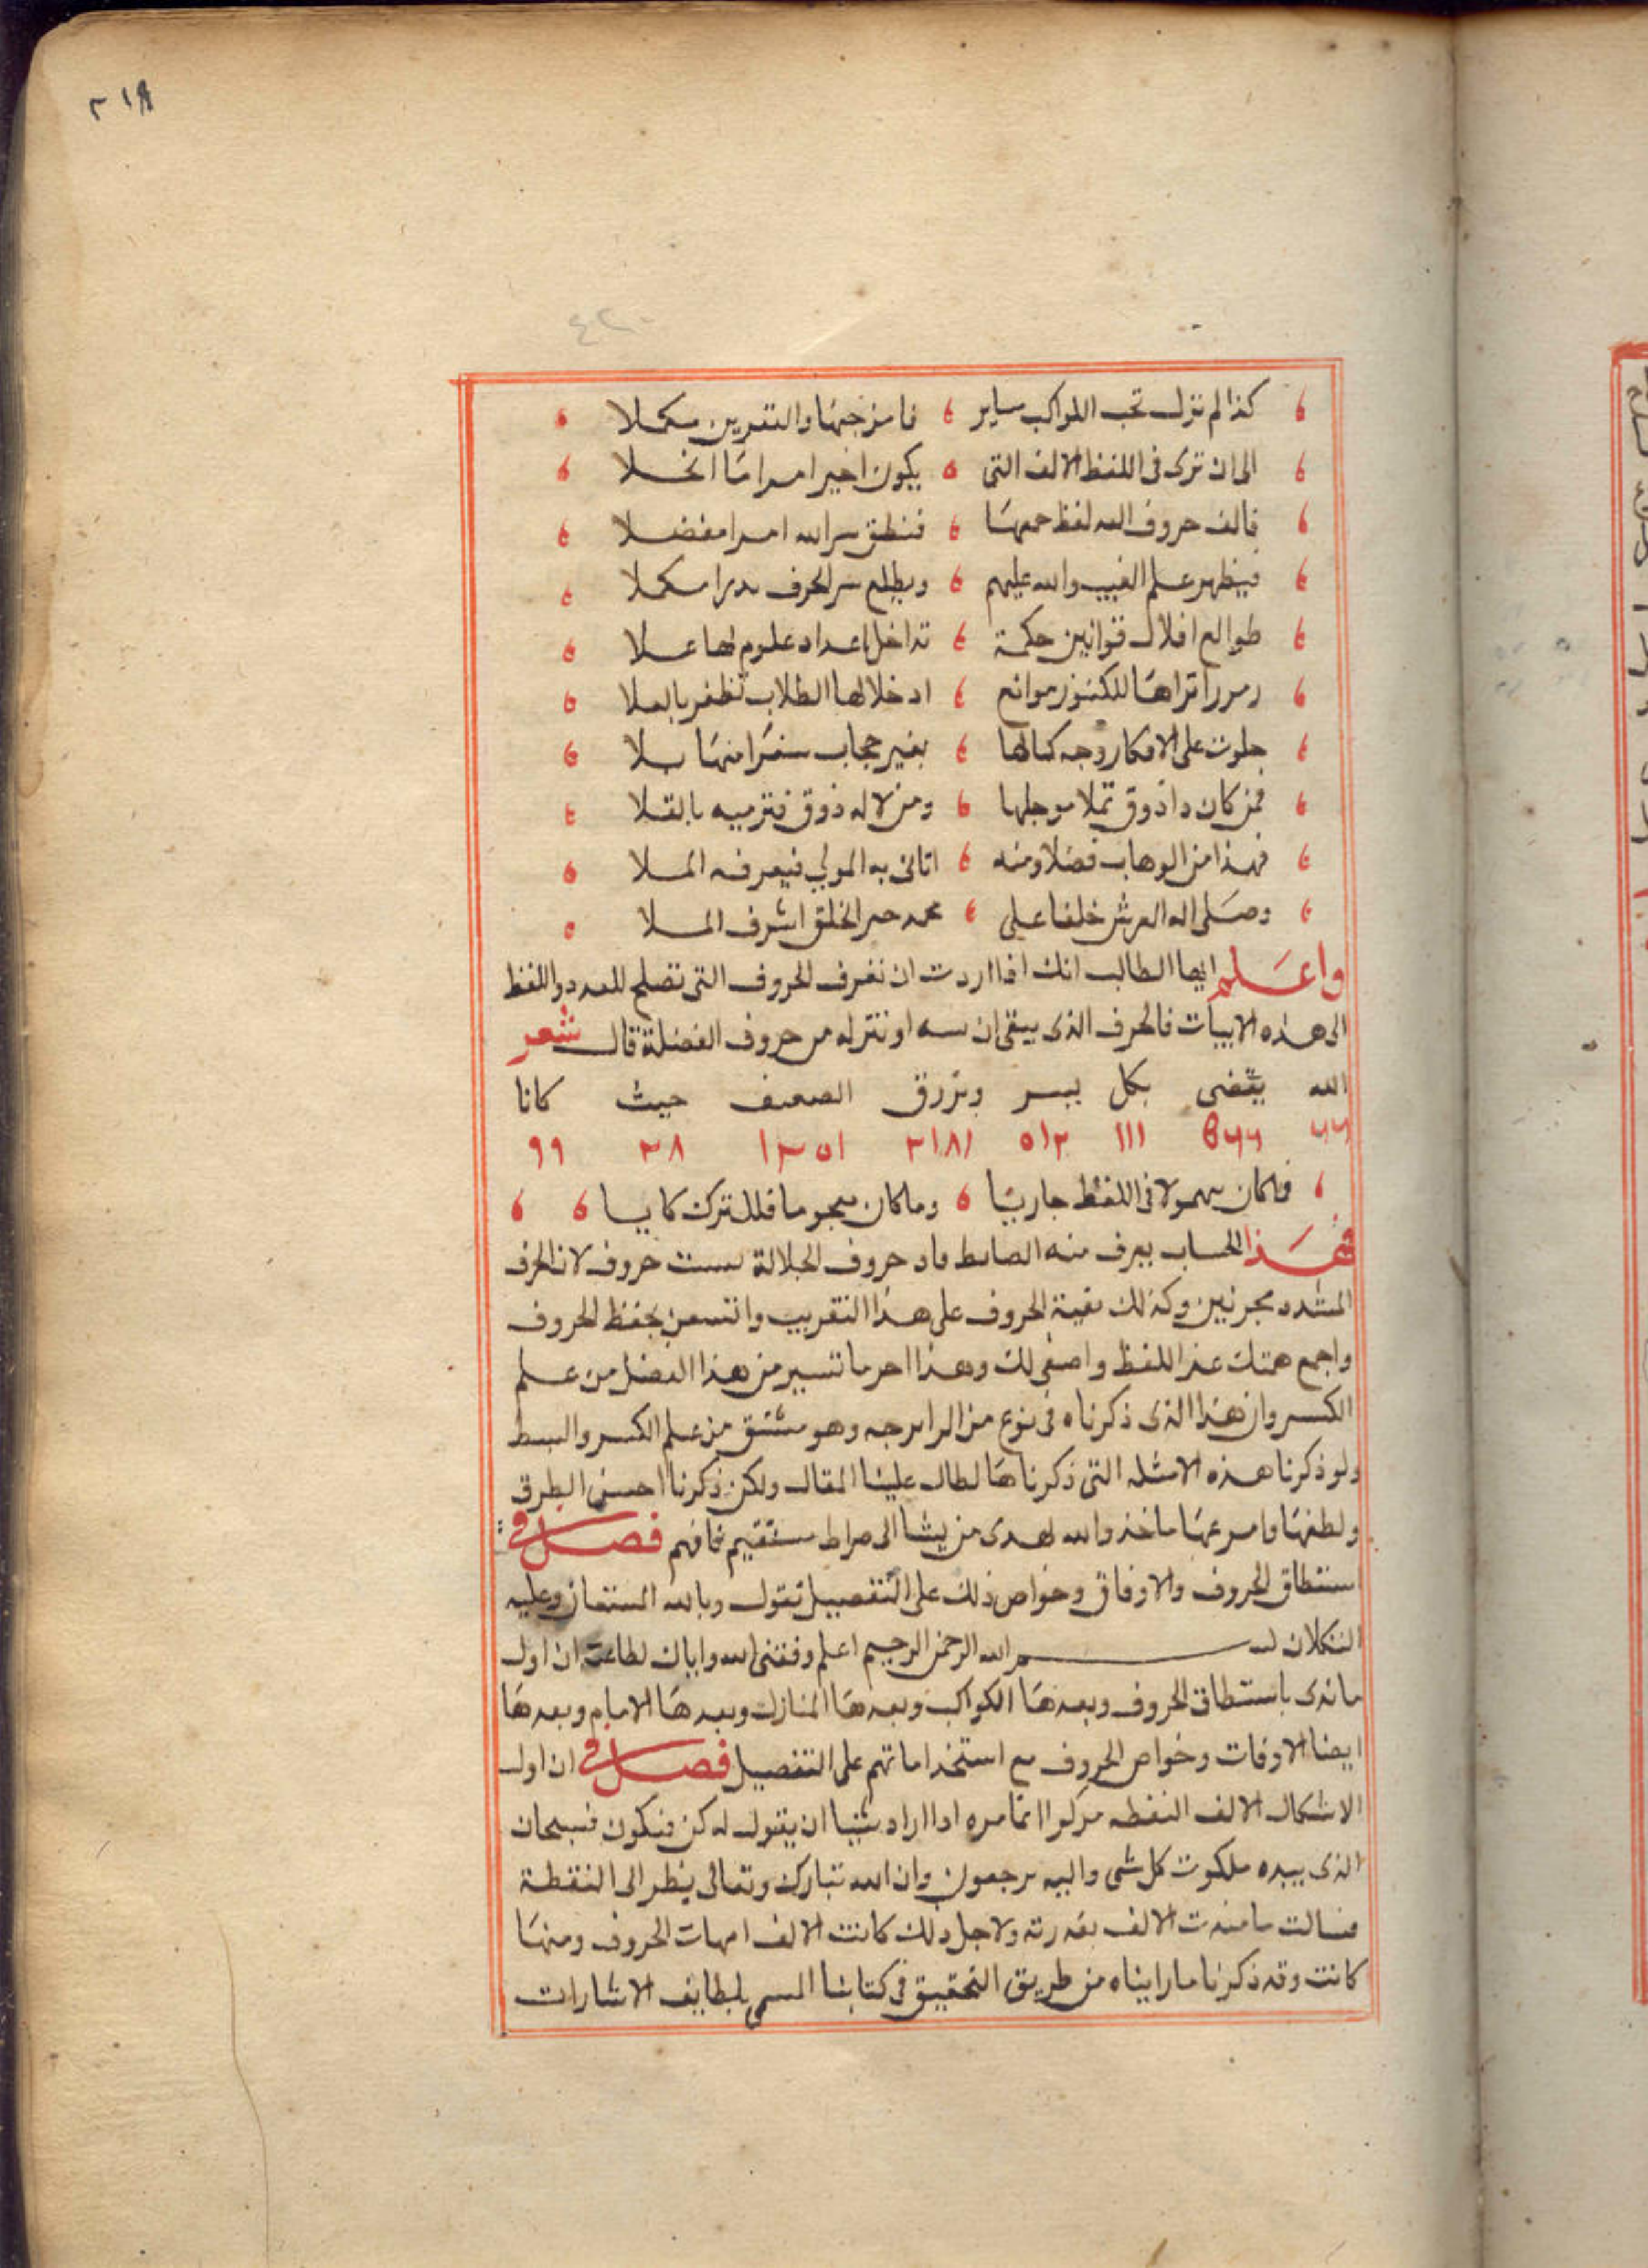 ٢١٨
كذا لم تزل تحت المراكب ساير فامزجنها والتقرين مكملا
الى ان ترى فى اللفظ الالف التى يكون اخيرا مراما انخلا
فالف حروف الله لفظ جمعها فنطق سر الله امرا مفضلا
فيظهر علم الغيب والله عليهم ويطلع سر الحرف بدرا مكملا
طوالع افلاك قوانين حكمة تداخل اعداد علوم لها علا
رموزا تراها للكنوز موانع ادخلا لها الطلاب تظفر بالعلا
جلوت على الافكار وجه كمالها بغير حجاب سفرا منها بلا
فمن كان ذا ذوق تملا موجلها ومن لا له ذوق فترميه بالقلا
فهذا من الوهاب فضلا ومنه اتانى به المولى فيعرفه الملا
وصلى اله العرش خلفا على محمد خير الخلق اشرف الملا
واعلم ايها الطالب انك اذا اردت ان تعرف الحروف التى تصلح للعدد واللفظ
الى هذه الابيات فالحرف الذى يبقى ان او تتركه من حروف الفضلة قال شعر
الله يقضى بكل يسر ويرزق الضعيف حيث كانا
١١١ ٥١٢ ٢١٨١ ١٣٥١ ٢٨ ٩٩
فلكان مهمولا فى اللفظ جاريا وما كان معجوما فللترك كايا
فهذا الحساب يعرف منه الضابط فاد حروف الجلالة ست حروف لان الحرف
المشدد بحرفين وكذلك بقية الحروف على هذا التقريب واستعن بحفظ الحروف
واجمع همتك عند اللفظ واصغى لك وهذا اخر ما تيسر من هذا الفضل من علم
الكسر وان هذا الذى ذكرناه فى نوع من الزايرجه وهو مشتق من علم الكسر والبسط
ولو ذكرنا هذه الامثله التى ذكرناها لطال علينا المقال ولكن ذكرنا احسن الطرق
ولطفها واسرعها ماخذ والله يهدى من يشا الى صراط مستقيم فافهم فصل فى
استنطاق الحروف والاوفاق وخواص ذلك على التفصيل نقول وبالله المستعان وعليه
التكلان بسم الله الرحمن الرحيم اعلم وفقنى الله واياك لطاعته ان اول
ما نبدى باستنطاق الحروف وبعدها الكواكب وبعدها المنازل وبعدها الايام وبعدها
ايضا الاوفات وخواص الحروف مع استخداماتهم على التفصيل فصل فى ان اول
الاشكال الالف النقطه مركوا انما امره اذا اراد شيا ان يقول له كن فيكون فسبحان
الذى بيده ملكوت كل شى واليه ترجعون وان الله تبارك وتعالى ينظر الى النقطة
فسالت فامتدت الالف بقدرته ولاجل ذلك كانت الالف امهات الحروف ومنها
كانت وقد ذكرنا ما رايناه من طريق التحقيق فى كتابنا المسمى بلطايف الاشارات